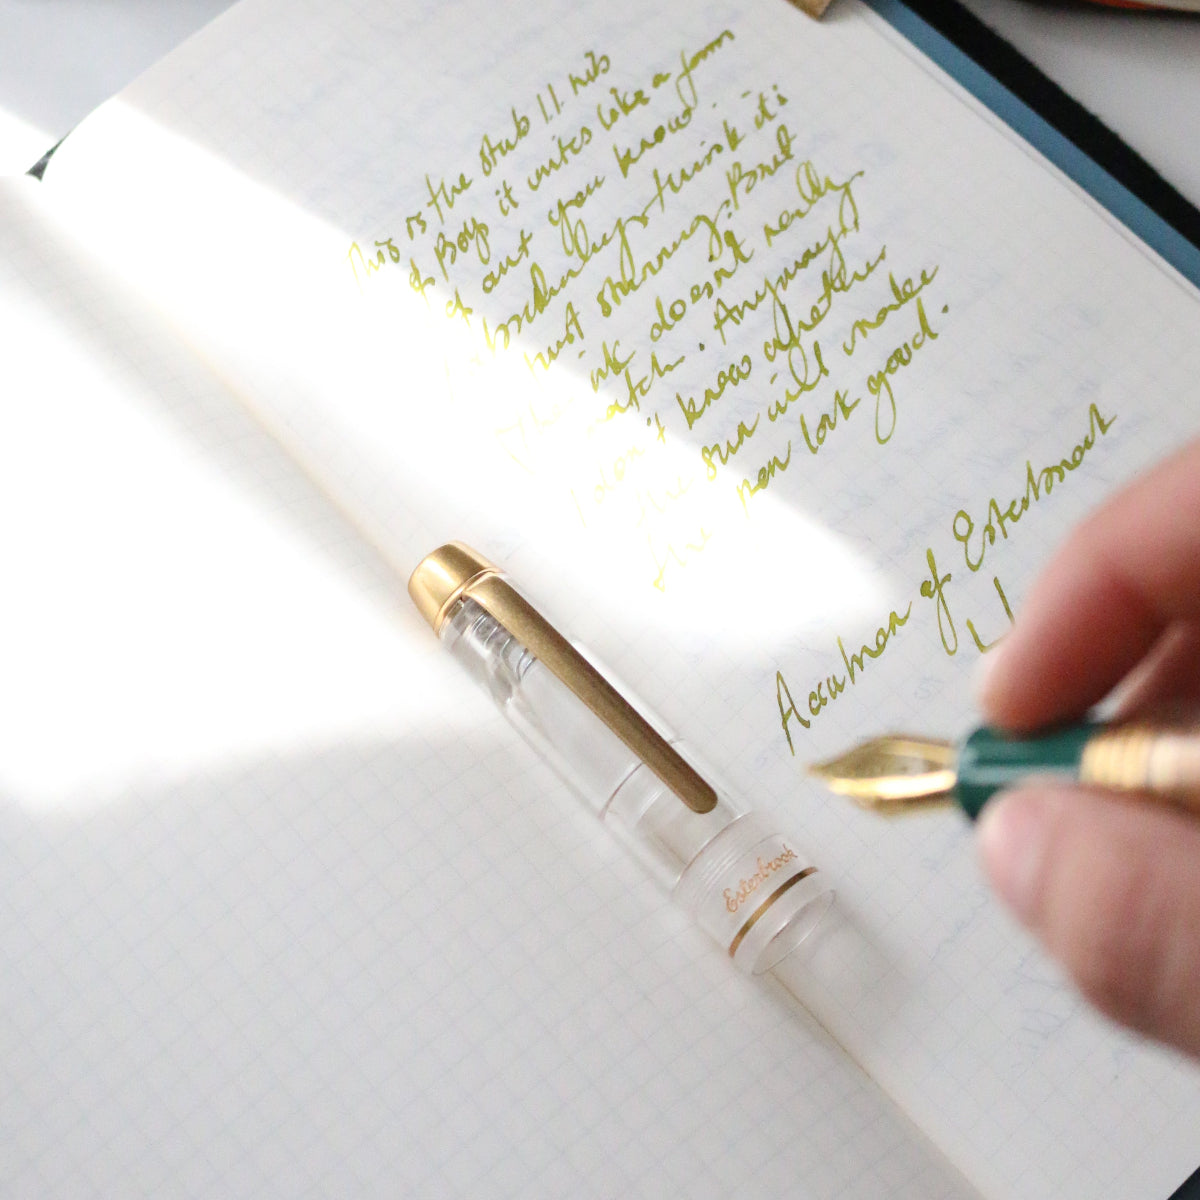 This is the stub 1.1 nib
of Boy it writes like a form
of art you know
think it's
just stunning. But
the ink doesn't really
match. Anyway,
I don't know whether
the sun will make
the pen look good.
of Esterbrook
Esterbrook